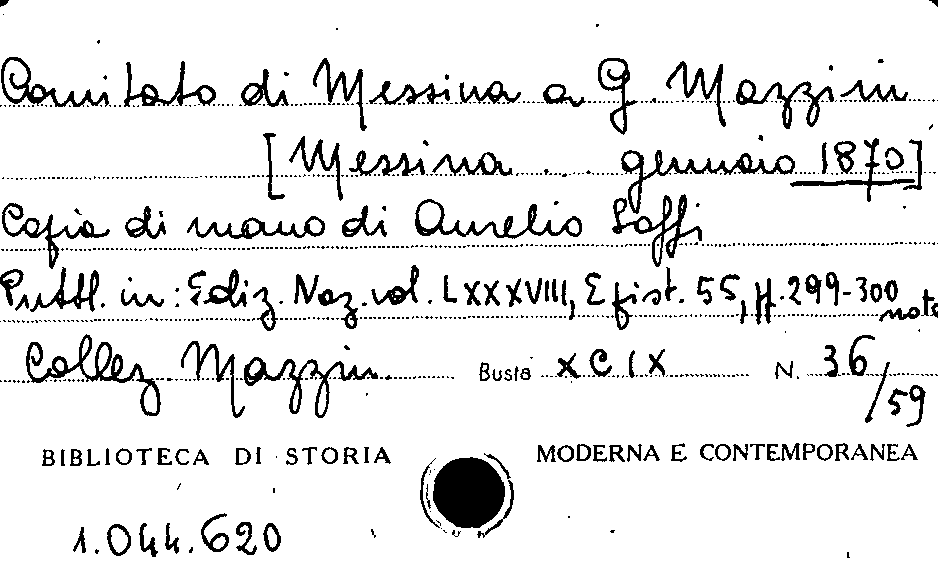 Comitato di Messina a G. Mazzini
[Messina ... gennaio 1870]
Copia di mano di Aurelio Saffi
Pubbl. in: Ediz. Naz. vol. LXXXVIII, Epist. 55, pp. 299-300 note
Collez. Mazzini Busta XCIX N. 36/59
BIBLIOTECA DI STORIA MODERNA E CONTEMPORANEA
1.044.620